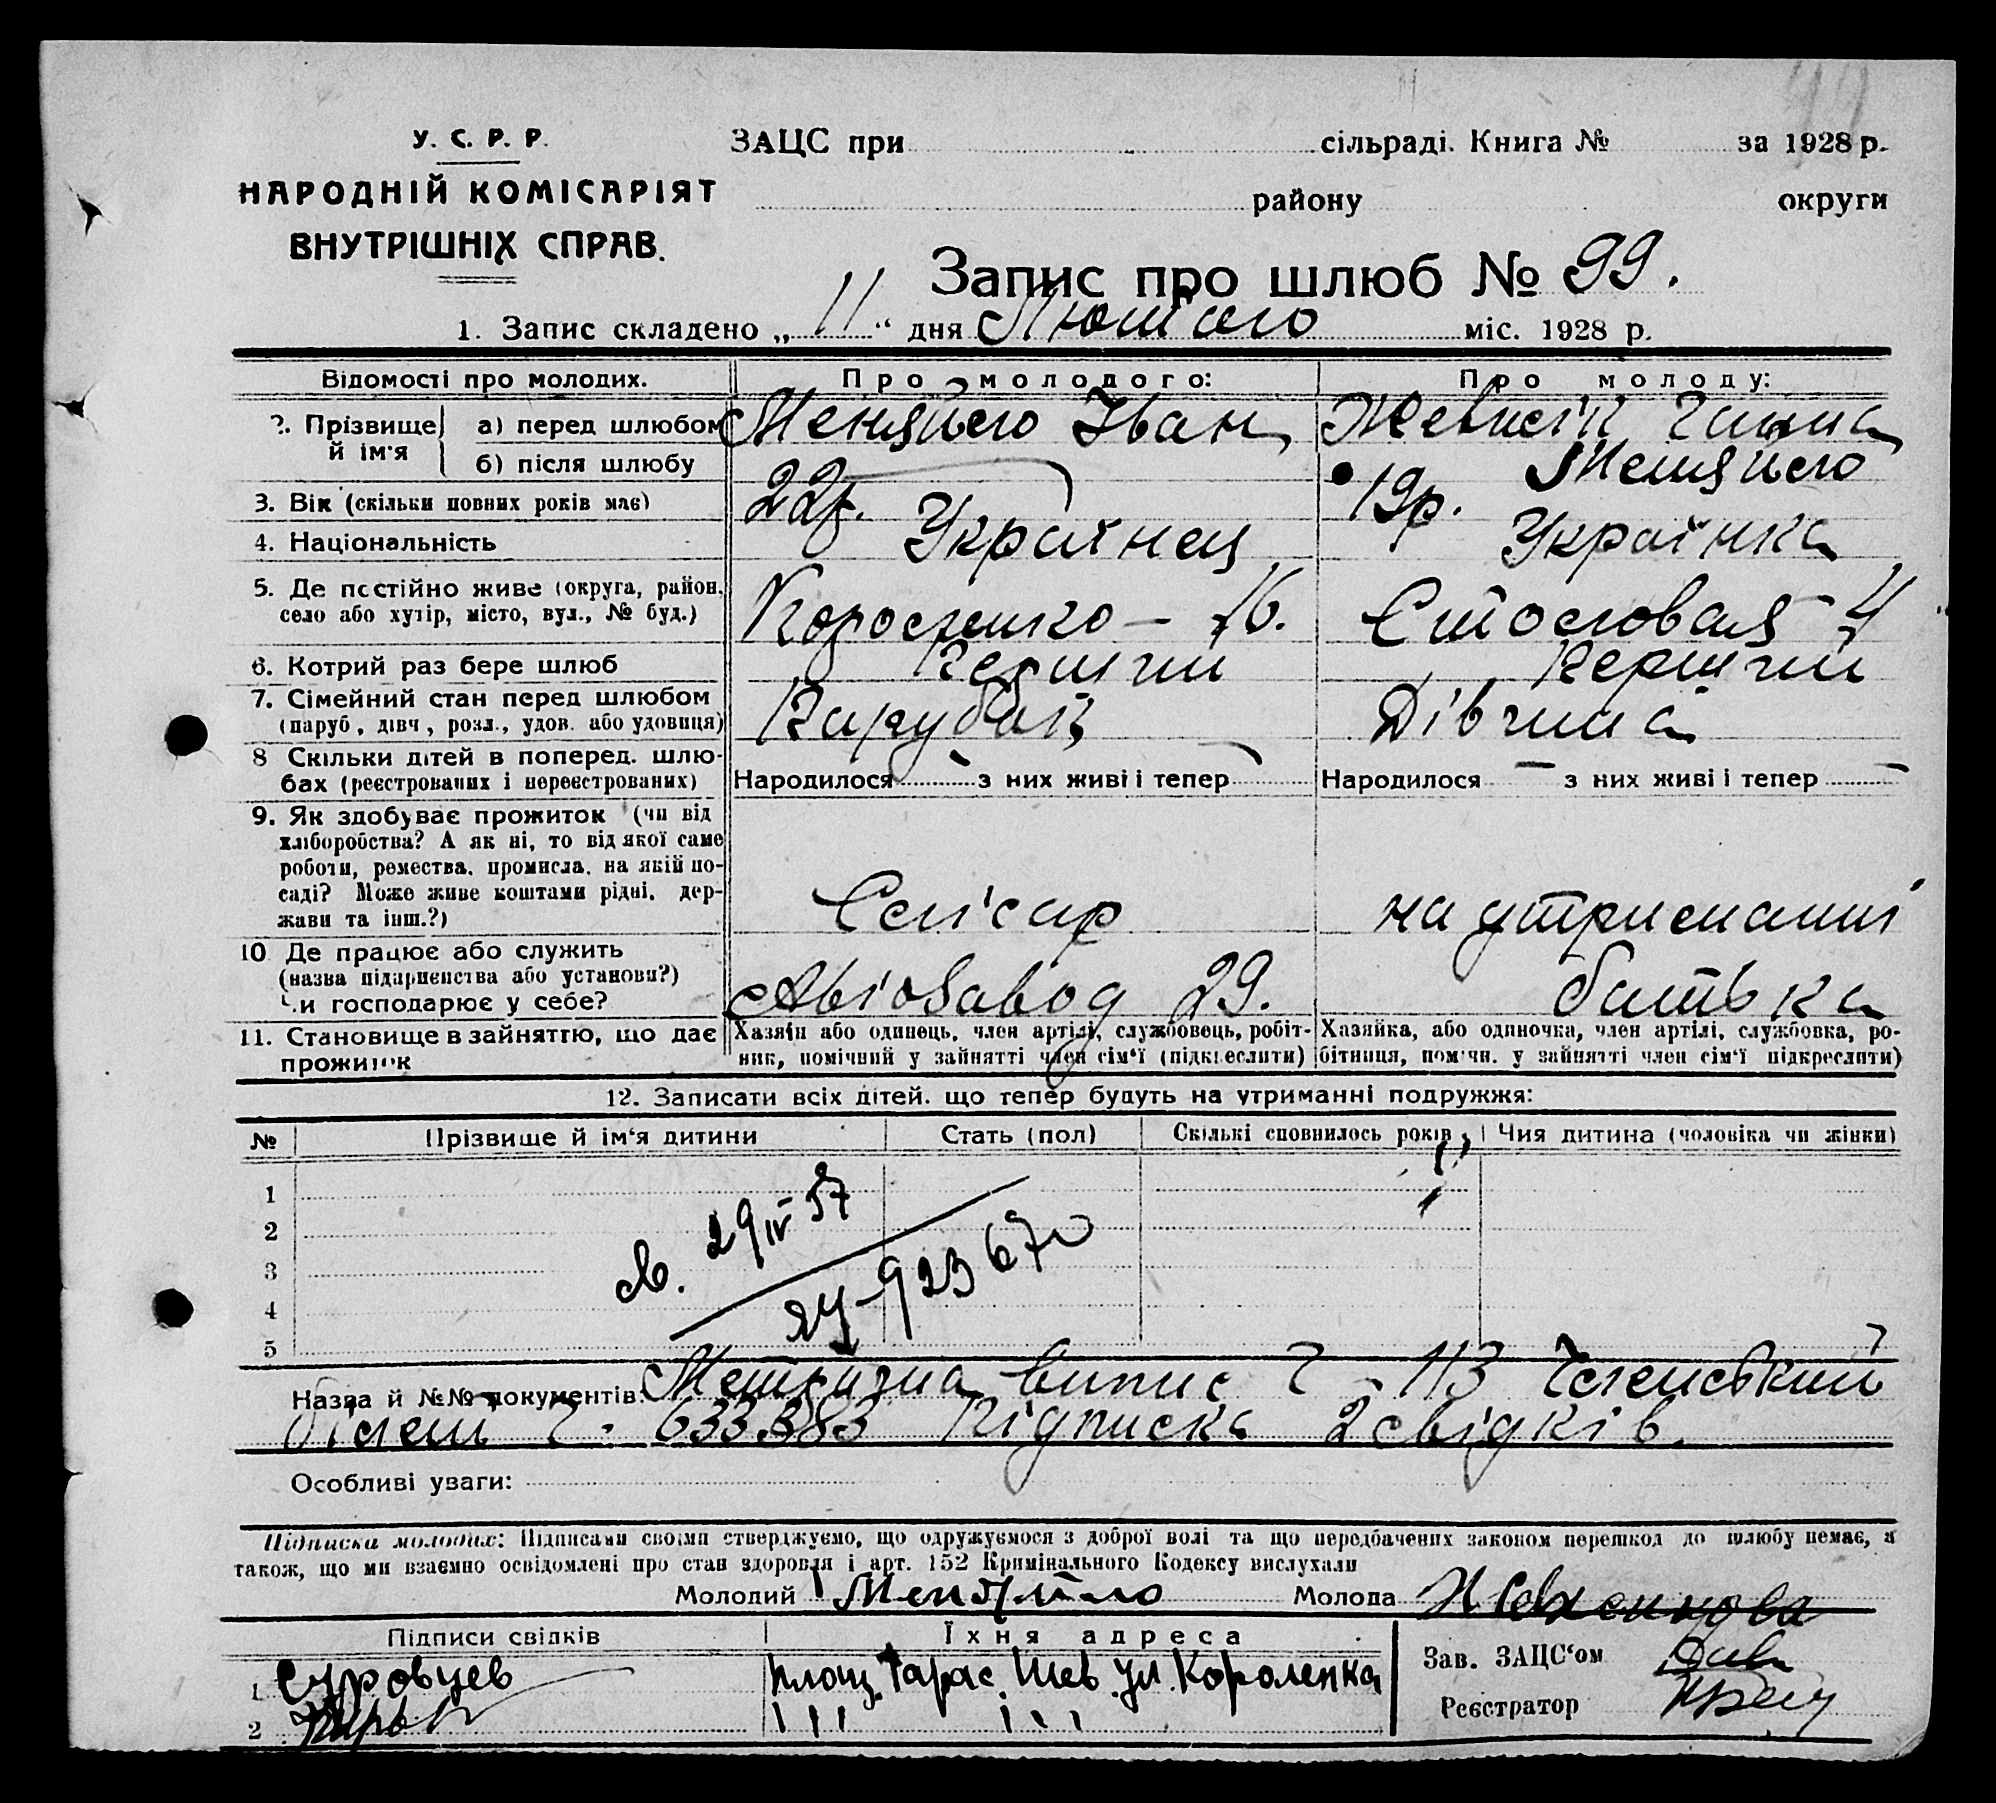 У. С. Р. Р.
НАРОДНІЙ КОМІСАРІЯТ
ВНУТРІШНІХ СПРАВ.
ЗАЦС при сільраді. Книга № за 1928 р.
району округи
Запис про шлюб № 99.
1. Запис складено „ 11 “ дня Лютого міс. 1928 р.
Відомості про молодих. Про молодого: Про молоду:
2. Прізвище й ім'я
а) перед шлюбом Меняйло Іван
б) після шлюбу Меняйло
3. Вік (скільки повних років має) 22р. 19р.
4. Національність Українец Українка
5. Де постійно живе (округа, район, село або хутір, місто, вул., № буд.) Столовая 4
6. Котрий раз бере шлюб Перший Перший
7. Сімейний стан перед шлюбом (паруб, дівч, розл., удов. або удовиця) Парубок Дівчина
8 Скільки дітей в поперед. шлюбах (реєстрованих і нереєстрованих) Народилося — з них живі і тепер — Народилося — з них живі і тепер —
9. Як здобуває прожиток (чи від хліборобства? А як ні, то від якої саме роботи, ремества, промисла, на якій посаді? Може живе коштами рідні, держави та інш.?) Слісар на утриманні
10 Де працює або служить (назва підприємства або установи?) Чи господарює у себе? Авіозавод 29. батька
11. Становище в зайняттю, що дає прожиток
Хазяїн або одинець, член артілі, службовець, робітник, помічний у зайнятті член сім'ї (підкреслити)
Хазяйка, або одиночка, член артілі, службовка, робітниця, помічн. у зайнятті член сім'ї підкреслити)
12. Записати всіх дітей, що тепер будуть на утриманні подружжя:
№ Прізвище й ім'я дитини Стать (пол) Скількі сповнилось років Чия дитина (чоловіка чи жінки)
1
2
3
4
5
29 IV 57
923670
Назва й №№ документів: Метрична випис Ч - 113 Членський
білет Ч. 633383 Підписка 2 свідків.
Особливі уваги:
Підписка молодих: Підписами своїми стверджуємо, що одружуємося з доброї волі та що передбачених законом перешкод до шлюбу немає, а
також, що ми взаємно освідомлені про стан здоровля і арт. 152 Кримінального Кодексу вислухали
Молодий Меняйло Молода
Підписи свідків Їхня адреса
1 Суровцев площ. Тарас. Шев. ул. Короленка
2
Зав. ЗАЦС'ом
Реєстратор